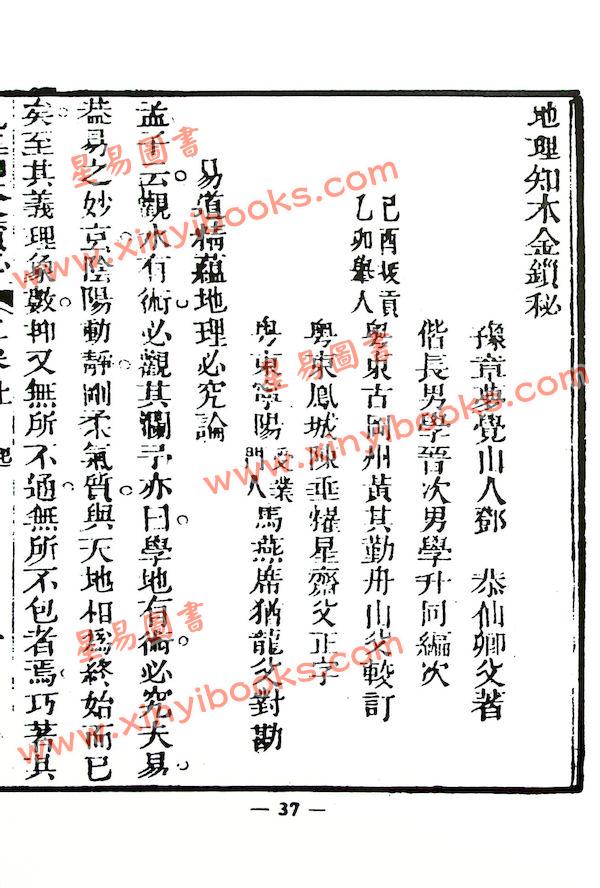 地理知本金鎖秘
豫章夢覺山人鄧 恭仙卿父著
偕長男學晉次男學升同編次
己酉拔貢乙卯舉人粵東古岡州黃其勤舟山父較訂
粵東鳳城陳垂燿星齋父正字
粵東寧陽受業門人馬燕席猶龍父對勘
易道精蘊地理必究論
孟子云觀水有術必觀其瀾予亦曰學地有術必究夫易
葢易之妙陰陽動靜剛柔氣質與天地相爲終始而已
矣至其義理象數抑又無所不通無所不包者焉巧著其
— 37 —
星易圖書
www.xinyibooks.com
星易圖書
www.xinyibooks.com
星易圖書
www.xinyibooks.com